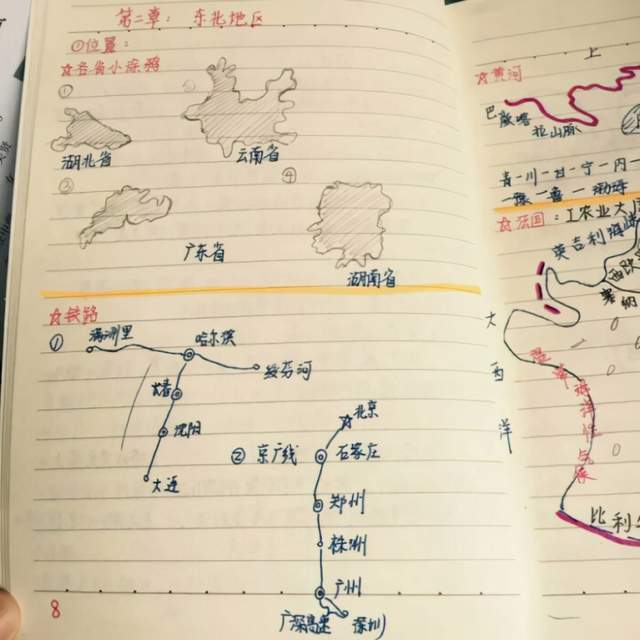 第二章： 东北地区
①位置：
☆各省小涂鸦
①
湖北省
云南省
②
④
广东省
湖南省
☆铁路
①
满洲里
哈尔滨
绥芬河
长春
沈阳
大连
② 京广线
北京
石家庄
郑州
株洲
广州
广深高速 深圳
8
上
☆黄河
巴颜喀
拉山脉
青一川一甘一宁一内一
一豫一鲁一渤海
☆法国：工农业大
英吉利海峡
大
西
洋
温
带
海
洋
性
气
候
比利